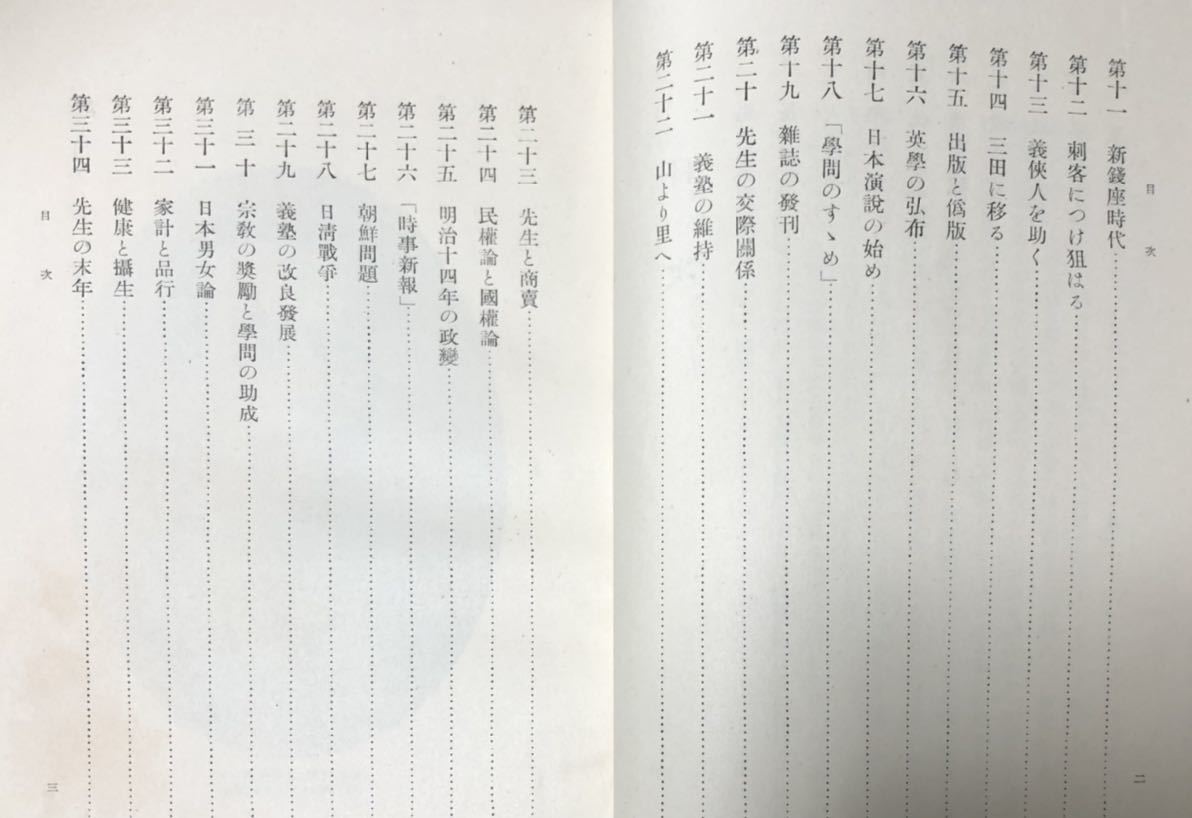 目次
第十一 新錢座時代
第十二 刺客につけ狙はる
第十三 義俠人を助く
第十四 三田に移る
第十五 出版と僞版
第十六 英學の弘布
第十七 日本演說の始め
第十八 「學問のすゝめ」
第十九 雜誌の發刊
第二十 先生の交際關係
第二十一 義塾の維持
第二十二 山より里へ
二
第二十三 先生と商賣
第二十四 民權論と國權論
第二十五 明治十四年の政變
第二十六 「時事新報」
第二十七 朝鮮問題
第二十八 日淸戰爭
第二十九 義塾の改良發展
第三十 宗敎の奬勵と學問の助成
第三十一 日本男女論
第三十二 家計と品行
第三十三 健康と攝生
第三十四 先生の末年
目次
三